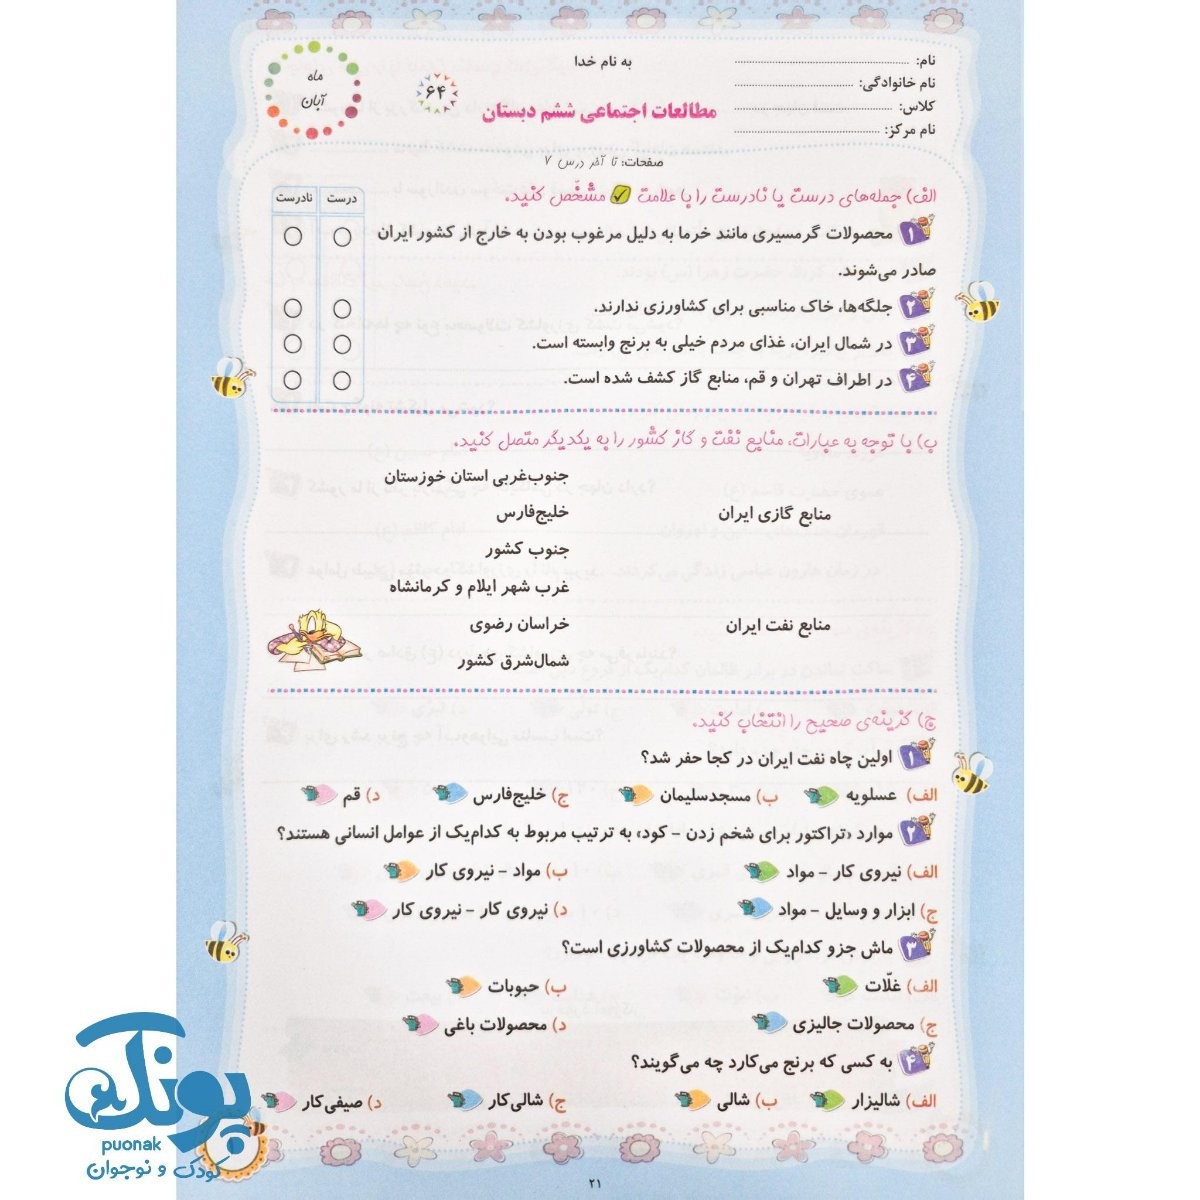 به نام خدا
نام:
نام خانوادگی:
کلاس:
نام مرکز:
مطالعات اجتماعی ششم دبستان
۶۴
ماه
آبان
صفحات: تا آخر درس ۷
الف) جمله‌های درست یا نادرست را با علامت مشخّص کنید.
درست نادرست
۱ محصولات گرمسیری مانند خرما به دلیل مرغوب بودن به خارج از کشور ایران
صادر می‌شوند.
۲ جلگه‌ها، خاک مناسبی برای کشاورزی ندارند.
۳ در شمال ایران، غذای مردم خیلی به برنج وابسته است.
۴ در اطراف تهران و قم، منابع گاز کشف شده است.
ب) با توجه به عبارات، منابع نفت و گاز کشور را به یکدیگر متصل کنید.
جنوب‌غربی استان خوزستان
منابع گازی ایران خلیج‌فارس
جنوب کشور
غرب شهر ایلام و کرمانشاه
منابع نفت ایران خراسان رضوی
شمال‌شرق کشور
ج) گزینه‌ی صحیح را انتخاب کنید.
۱ اولین چاه نفت ایران در کجا حفر شد؟
الف) عسلویه ب) مسجدسلیمان ج) خلیج‌فارس د) قم
۲ موارد «تراکتور برای شخم زدن - کود» به ترتیب مربوط به کدام‌یک از عوامل انسانی هستند؟
الف) نیروی کار - مواد ب) مواد - نیروی کار
ج) ابزار و وسایل - مواد د) نیروی کار - نیروی کار
۳ ماش جزو کدام‌یک از محصولات کشاورزی است؟
الف) غلّات ب) حبوبات
ج) محصولات جالیزی د) محصولات باغی
۴ به کسی که برنج می‌کارد چه می‌گویند؟
الف) شالیزار ب) شالی ج) شالی‌کار د) صیفی‌کار
۲۱
پونک
puonak
کودک و نوجوان